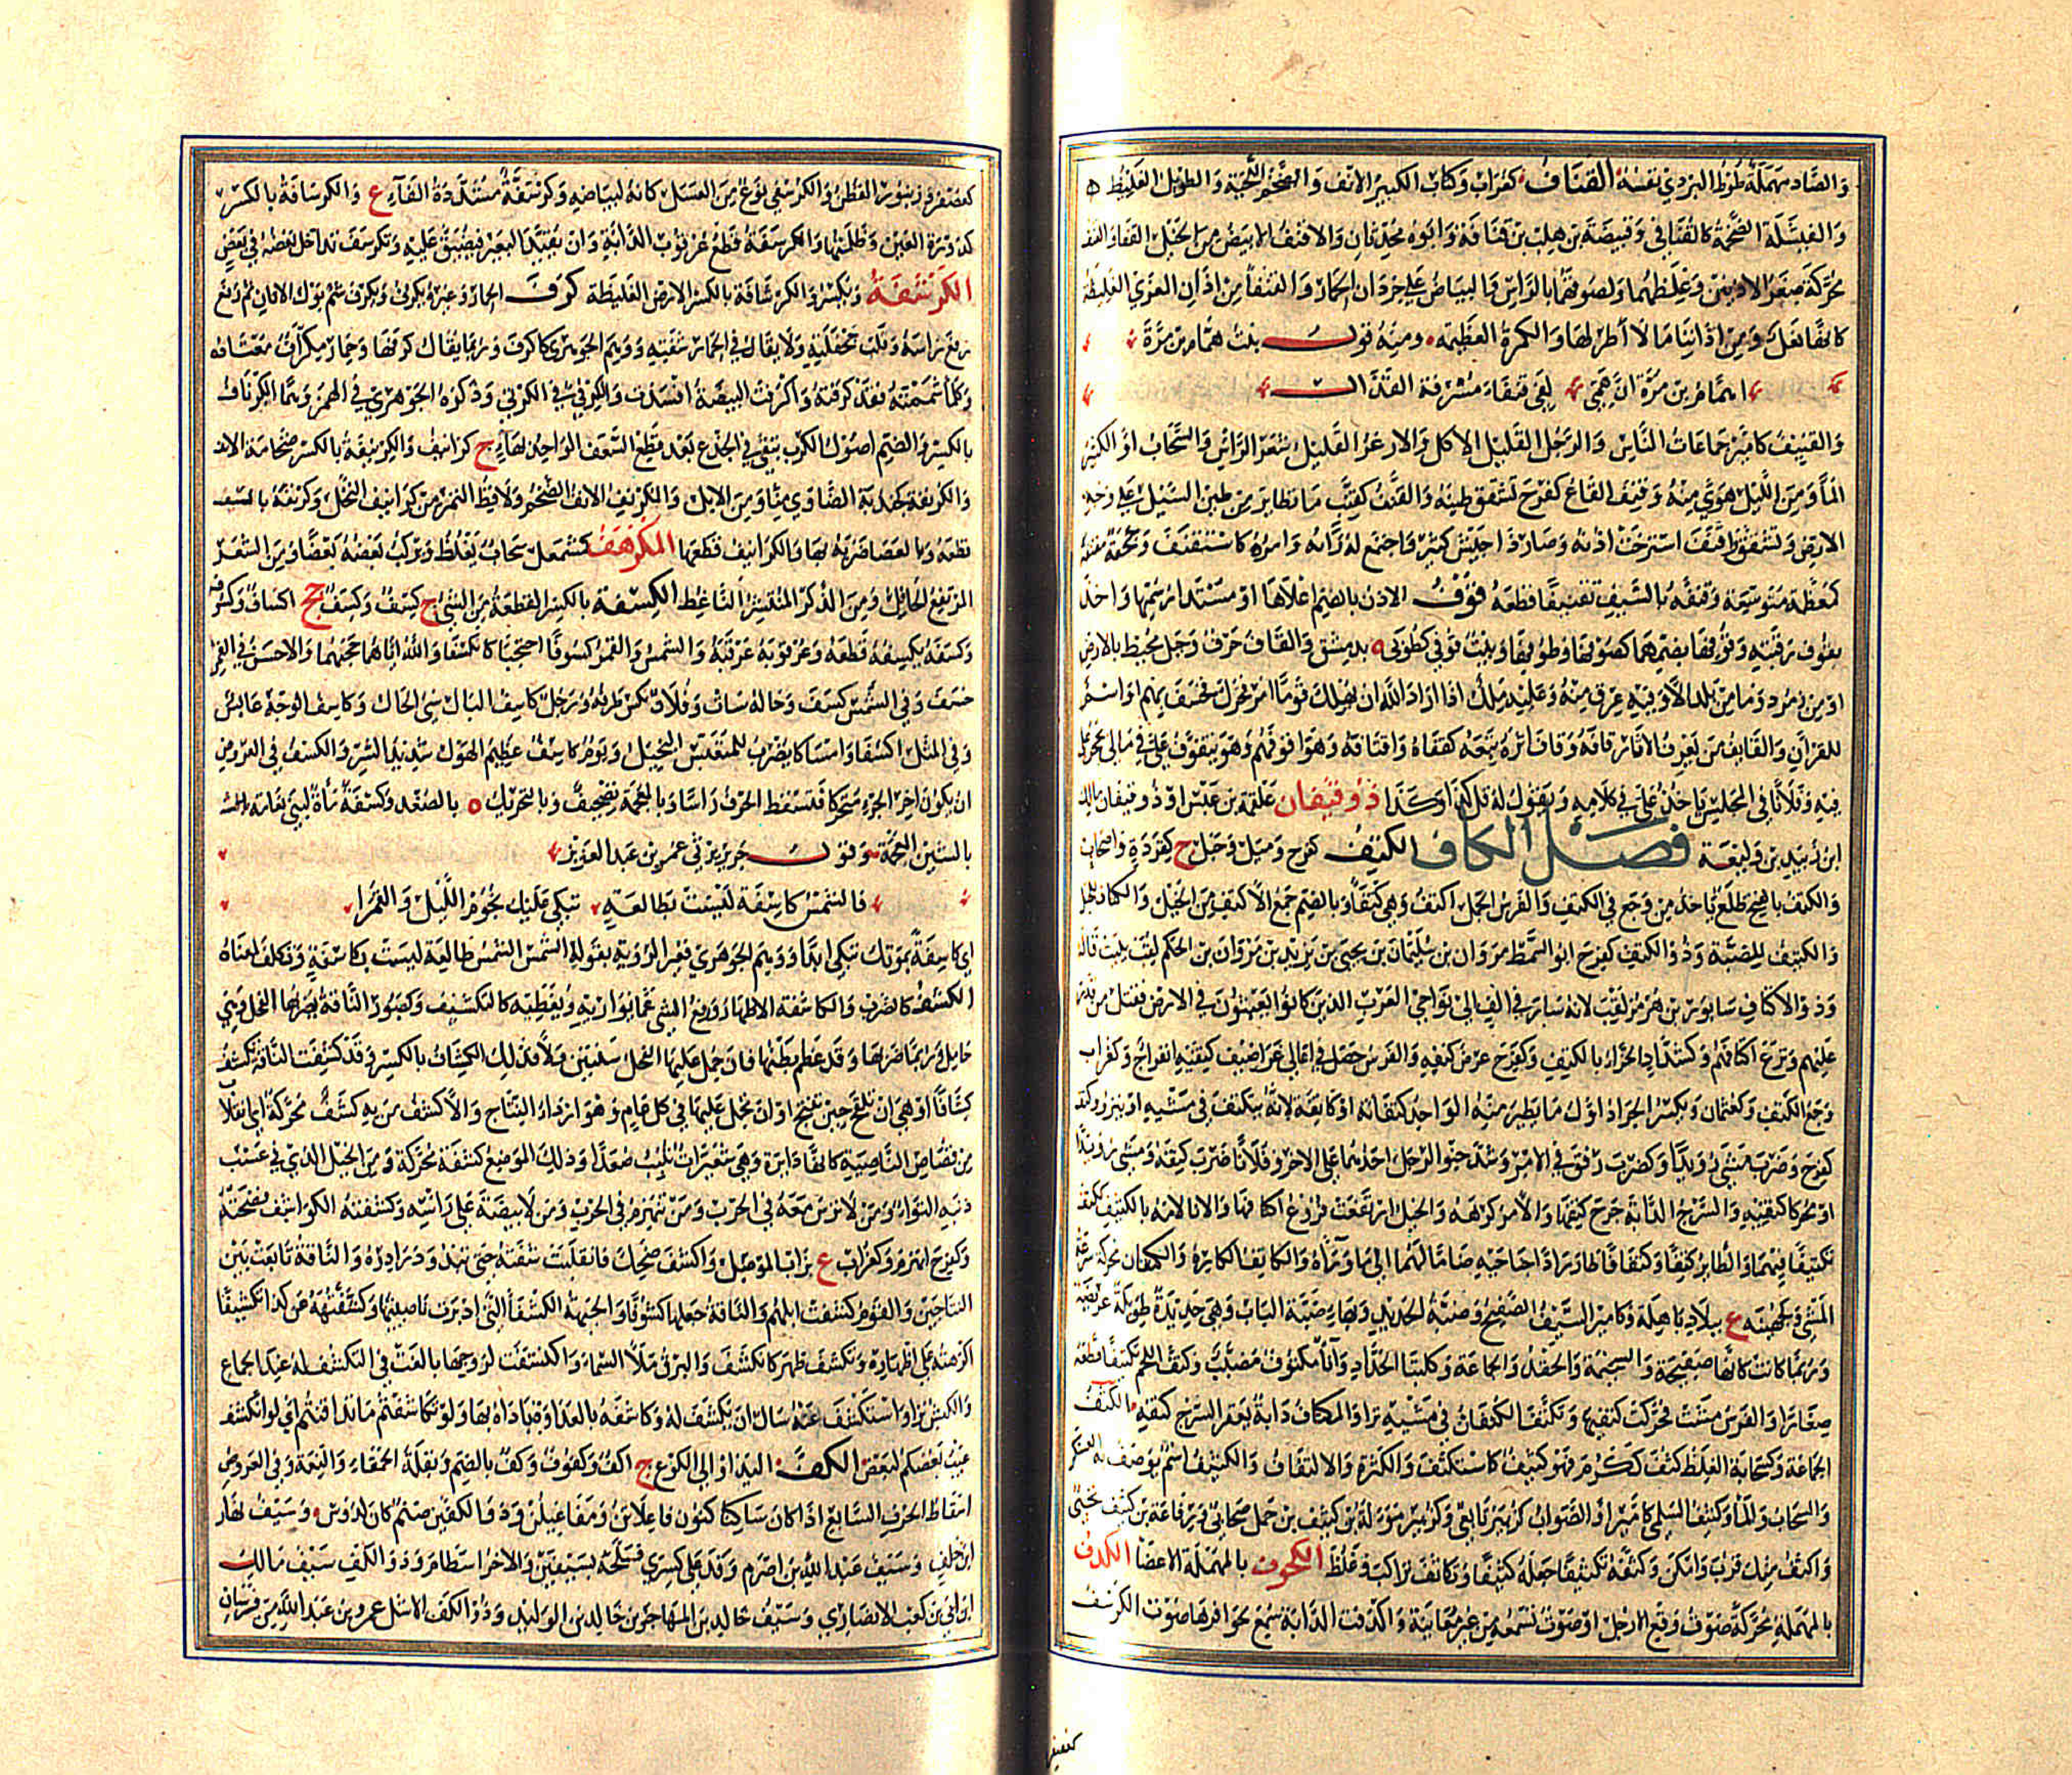 والصاد مهملة طوط البردي نفسه القناف كغراب وكتاب الكبير الانف والضخم اللحية والطويل الغليظ
والفيشلة الضخمة كالقنافي وقبيصة بن هلب بن قنافة وابوه محدثان والاقنف الابيض من الخيل القفا والقنف
محركة صغر الاذنين وغلظهما ولصوقهما بالراس والبياض على جردان الحمار والقنفا من اذان المعزى الغليظة
كانها نعل ومن اذاننا ما لا اطر لها والكمرة العظيمة ومنه قول بنت همام بن مرة
اهمام بن مرة ان همي لفي قنفاء مشرفة القذال
والقنيف كامير جماعات الناس والرجل القليل الاكل والازعر القليل شعر الراس والسحاب او الكثير
الماء ومن الليل هوي منه وقنف القاع كفرح تشقق طينه والقنف كقنب ما تطاير من طين السيل على وجه
الارض وتشقق واقنف استرخت اذنه وصار ذا جيش كثير واجتمع له رايه وامره كاستقنف وحجفة مقنفة
كمعظمة متوسعة وقنفه بالسيف تقنيفا قطعه قوف الاذن بالضم اعلاها او مستدار سمها واخذ
بقوف رقبته وقوفها بضمهما كصوفها وطوفها وبيت قوفى كطوبى ه بدمشق والقاف حرف وجبل محيط بالارض
او من زمرد وما من بلد الا وفيه عرق منه وعليه ملك اذا اراد الله ان يهلك قوما امره فحرك فخسف بهم او اسم
للقران والقايف من يعرف الاثار قافة وقاف اثره تبعه كقفاه واقتافه وهو اقوفهم وهو يتقوف على في مالي يحجر علي
فيه وفلانا في المجلس ياخذ عليه في كلامه ويقول له قل كذا وكذا ذو قيفان علقمة بن عبس او ذو قيفان مالك
ابن زبيد بن وليعة فصل الكاف الكتف كفرح ومثل وحبل ج كقردة واصحاب
والكتف بالفتح ظلع ياخذ من وجع في الكتف والفرس الجمل اكتف وهي كتفا وبالضم جمع الاكتف من الخيل والكتاف
والكتيف للضبة وذو الكتف كفرح ابو السمط مروان بن سليمان بن يحيى بن يزيد بن مروان بن الحكم لقب ببيت قاله
وذو الاكتاف سابور بن هرمز لقب لانه سار في الف الى نواحي العرب الذين كانوا يعيثون في الارض فقتل من قدر
عليهم ونزع اكتافهم وكشداد الحزاء بالكتف وكفرح عرض كتفه والفرس حصل في اعالي غراضيف كتفيه انفراج وكغراب
وجع الكتف وكعثمان ويكسر الجراد اول ما يطير منه الواحد كتفانه او كاتفة لانه يتكتف في مشيه او ينزو وكتف
كفرح وضرب مشى رويدا وكضرب رفق في الامر وشد حنوي الرحل احدهما على الاخر وفلانا ضرب كتفه ومشى رويدا
او محركا كتفيه والسرج الدابة جرح كتفها والامر كرهه والخيل ارتفعت فروع اكتافها والانا لامه بالكتيف
تكتيفا فيهما والطاير كتفا وكتفانا طار رادا جناحيه ضاما لهما الى ما وراه والكاتف الكاره والكتفان محركة سرعة
المشي وكجهينه ع ببلاد باهلة وكامير السيف الصفيح وضبة الحديد وبهاء ضبة الباب وهي حديدة طويلة عريضة
وربما كانت كانها صفيحة والسخيمة والحقد والجماعة وكلبتا الحداد واناء مكتوف مضبب وكتف اللحم تكتيفا قطعه
صغارا والفرس مشت فحركت كتفيها وتكتف الكتفان في مشيه نزا والمكتاف دابة يعقر السرج كتفيه الكثف
الجماعة وكسحابة الغلظ كثف ككرم فهو كثيف كاستكثف والكثرة والالتفاف والكثيف اسم يوصف به العسكر
والسحاب والماء وكثيف السلمي كامير او الصواب كزبير تابعي وكزبير مورلة بن كثيف بن حمل صحابي ورفاعة بن كثيف تجيبي
واكثف منك قرب وامكن وكثفه تكثيفا جعله كثيفا وتكاثف تراكب وغلظ الكحوف بالمهملة الاعضا الكدف
بالمهملة محركة صوف وقع الارجل او صوت تسمعه من غير معاينة واكدفت الدابة سمع لحوافرها صوت الكرسف
كعصفر وزنبور القطن والكرسفي نوع من العسل كانه لبياضه وكرسفة مشددة الفاء ع والكرسافة بالكسر
كدورة العين وظلمتها والكرسفة قطع عرقوب الدابة وان يقيد البعير فيضيق عليه وتكرسف تداخل بعضه في بعض
الكرشفة ويكسر والكرشافة بالكسر الارض الغليظة كرف الحمار وغيره يكرف ويكرف شم بول الاتان ثم رفع
راسه وقلب جحفلته ولا يقال في الحمار شفته ووهم الجوهري كاكرف وربما يقال كرفها وحمار مكراف معتاده
وكلما شممته فقد كرفته واكرفت البيضة افسدت والكرفئ في الكرثئ وذكره الجوهري في الهمز وهما الكرناف
بالكسر والضم اصول الكرب تبقى في الجذع بعد قطع السعف الواحد بهاء ج كرانيف والكرنيفة بالكسر ضخامة الانف
والكرنفة كجندبة الضاوي منا ومن الابل والكرنيف الانف الضخم ولاقط التمر من كرانيف النخل وكرنفه بالسيف
قطعه وبالعصا ضربه بها والكرانيف قطعها المكرهف كمشمعل سحاب يغلظ ويركب بعضه بعضا ومن الشعر
المرتفع الحافل ومن الذكر المنتشر الناعظ الكسفة بالكسر القطعة من الشيء ج كسف وكسف جج اكساف وكسوف
وكسفه يكسفه قطعه وعرقوبه عرقبه والشمس والقمر كسوفا احتجبا كانكسفا والله اياهما حجبهما والاحسن في القمر
خسف وفي الشمس كسف وحاله ساءت وفلان نكس طرفه ورجل كاسف البال سيئ الحال وكاسف الوجه عابس
وفي المثل اكسفا وامساكا يضرب للمتعبس البخيل ويوم كاسف عظيم الهول شديد الشر والكسف في العروض
ان يكون اخر الجزء متحركا فتسقط الحرف راسا وبالمعجمة تصحيف وبالتحريك ه بالصغد وكسفة ماءة لبني نعامة
بالشين المعجمة وقول جرير يرثي عمر بن عبد العزيز
فالشمس كاسفة ليست بطالعة تبكي عليك نجوم الليل والقمرا
اي كاسفة بموتك تبكي ابدا ووهم الجوهري فغير الرواية بقوله الشمس طالعة ليست بكاسفة وتكلف لمعناه
الكشف كالضرب والكاشفة الاظهار ورفع الشيء عما يواريه ويغطيه كالتكشيف وكصبور الناقة يضربها الفحل وهي
حامل وربما ضربها وقد عظم بطنها فان حمل عليها الفحل سنتين ولاء فذلك الكشاف بالكسر وقد كشفت الناقة تكشف
كشافا او هي ان تلقح حين تنتج او ان يحمل عليها في كل عام وهو اردا النتاج والاكشف من به كشف محركة اي انقلاب
من قصاص الناصية كانها دايرة وهي شعيرات تنبت صعدا وذلك الموضع كشفة محركة ومن الخيل الذي في عسيب
ذنبه التواء ومن لا ترس معه في الحرب ومن ينهزم في الحرب ومن لا بيضة على راسه وكشفته الكواشف فضحته
وكفرح انهزم وكغراب ع بزاب الموصل واكشف ضحك فانقلبت شفته حتى تبدو درادره والناقة تابعت بين
النتاجين والقوم كشفت ابلهم والناقة جعلها كشوفا والجبهة الكشفا التي ادبرت ناصيتها وكشفته عن كذا تكشيفا
اكرهته على اظهاره وتكشف ظهر كانكشف والبرق ملا السماء واكتشفت لزوجها بالغت في التكشف له عند الجماع
والكبش نزا واستكشف عنه سال ان يكشف له وكاشفه بالعداوة باداه بها ولو تكاشفتم ما تدافنتم اي لو انكشف
عيب بعضكم لبعض الكف اليد او الى الكوع ج اكف وكفوف وكف بالضم وبقلة الحمقاء والنعمة وفي العروض
اسقاط الحرف السابع اذا كان ساكنا كنون فاعلاتن ومفاعيلن وذو الكفين صنم كان لدوس وسيف نهار
ابن حلف وسيف عبد الله بن اصرم وفد على كسرى فسلحه بسيفين والاخر اسطام وذو الكف سيف مالك
ابن ابي بن كعب الانصاري وسيف خالد بن المهاجر بن خالد بن الوليد وذو الكف الاشل عمرو بن عبد الله من فرسان